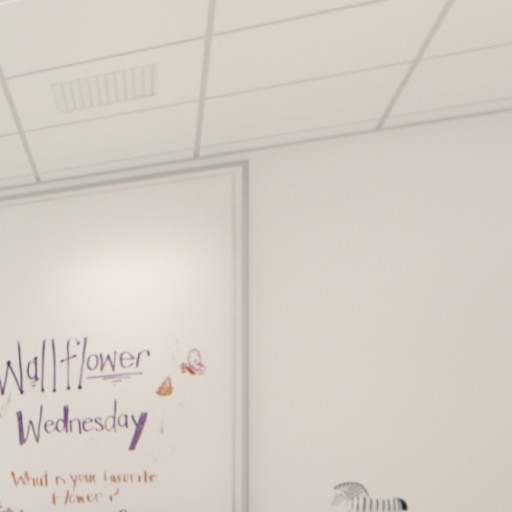 Wallflower
Wednesday
What is your favorite
flower?